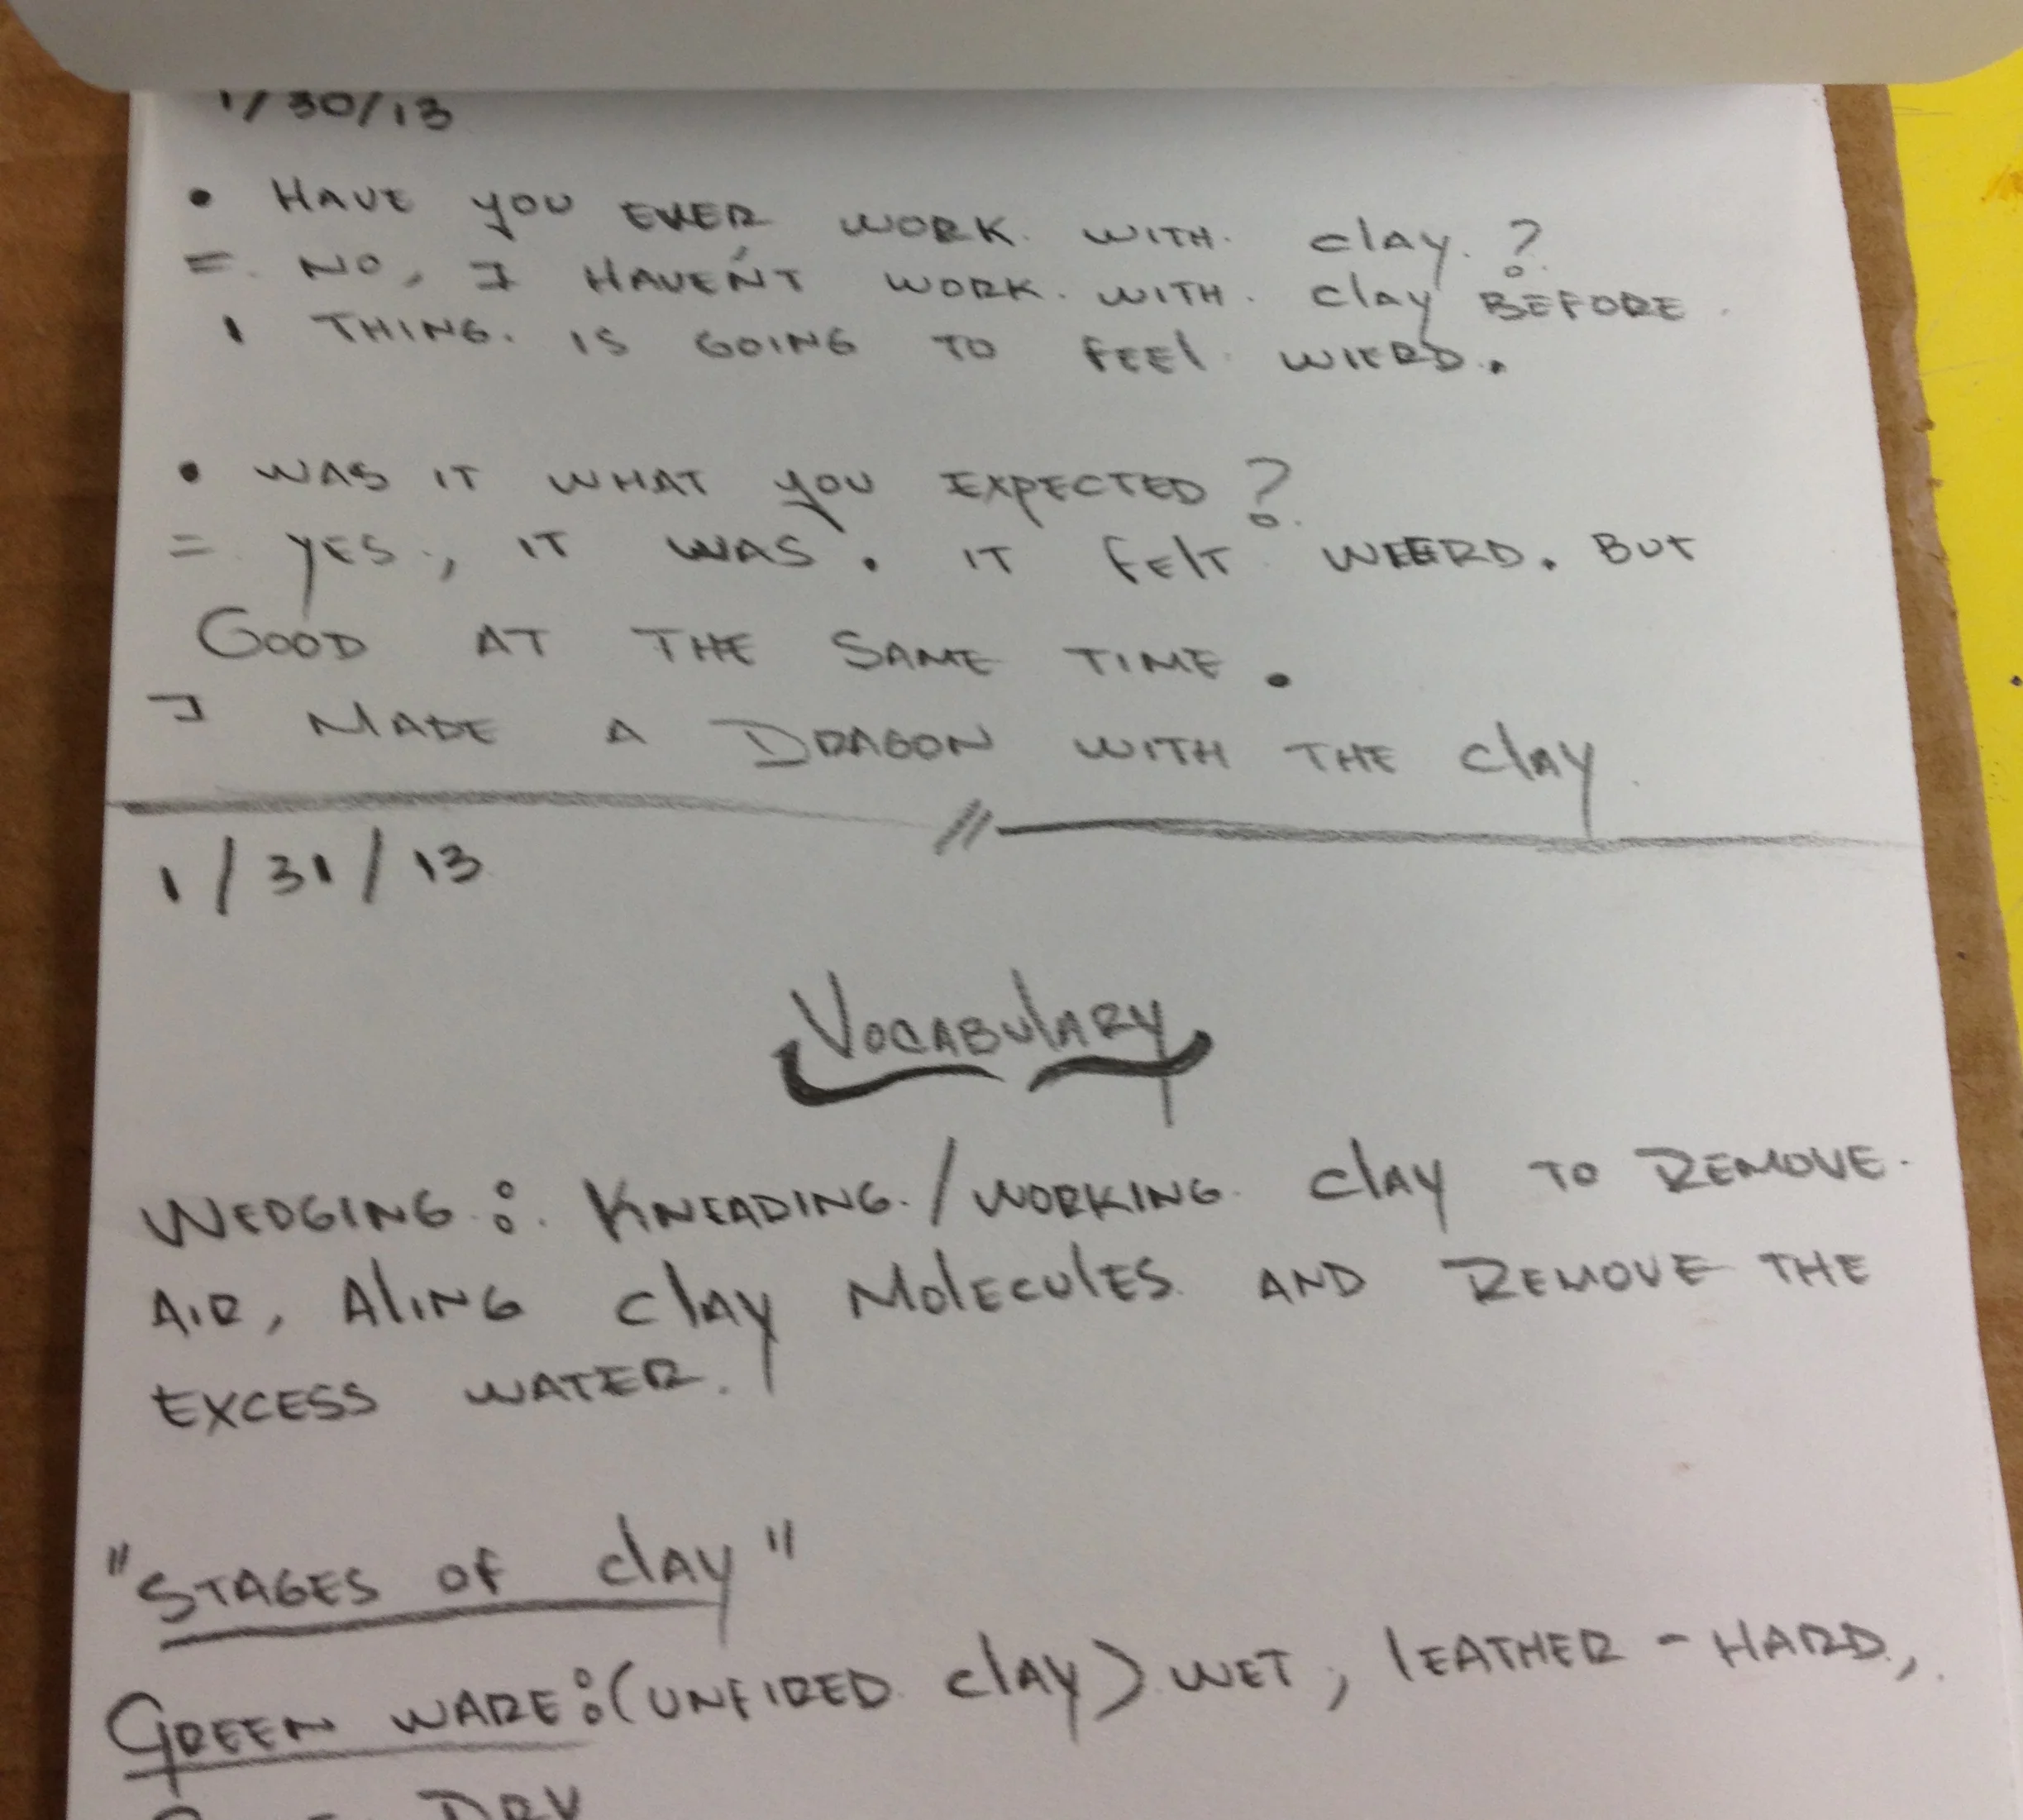 1/30/13
• HAVE YOU EVER WORK WITH clay.?
= NO, I HAVEN'T WORK WITH clay BEFORE.
1 THING. IS GOING TO FEEl WIERD.
• WAS IT WHAT YOU EXPECTED?
= YES, IT WAS. IT FElT WEERD. BUT
GOOD AT THE SAME TIME.
I MADE A DRAGON WITH THE clAY
1/31/13
VOCABULARY
WEDGING: KNEADING/WORKING clAY TO REMOVE
AIR, AlING clAY MOlECUlES AND REMOVE THE
EXCESS WATER.
"STAGES OF clAY"
GREEN WARE: (UNFIRED clAY) WET, lEATHER-HARD,
DRY